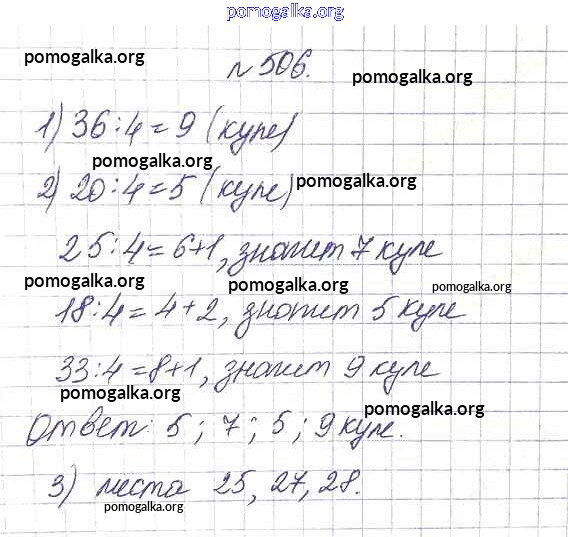 pomogalka.org
pomogalka.org
№ 506.
pomogalka.org
1) 36:4=9 (купе)
pomogalka.org
2) 20:4=5 (купе)
pomogalka.org
25:4=6+1, значит 7 купе
pomogalka.org
pomogalka.org
pomogalka.org
18:4=4+2, значит 5 купе
33:4=8+1, значит 9 купе
pomogalka.org
pomogalka.org
Ответ: 5; 7; 5; 9 купе.
3) места 25, 27, 28.
pomogalka.org